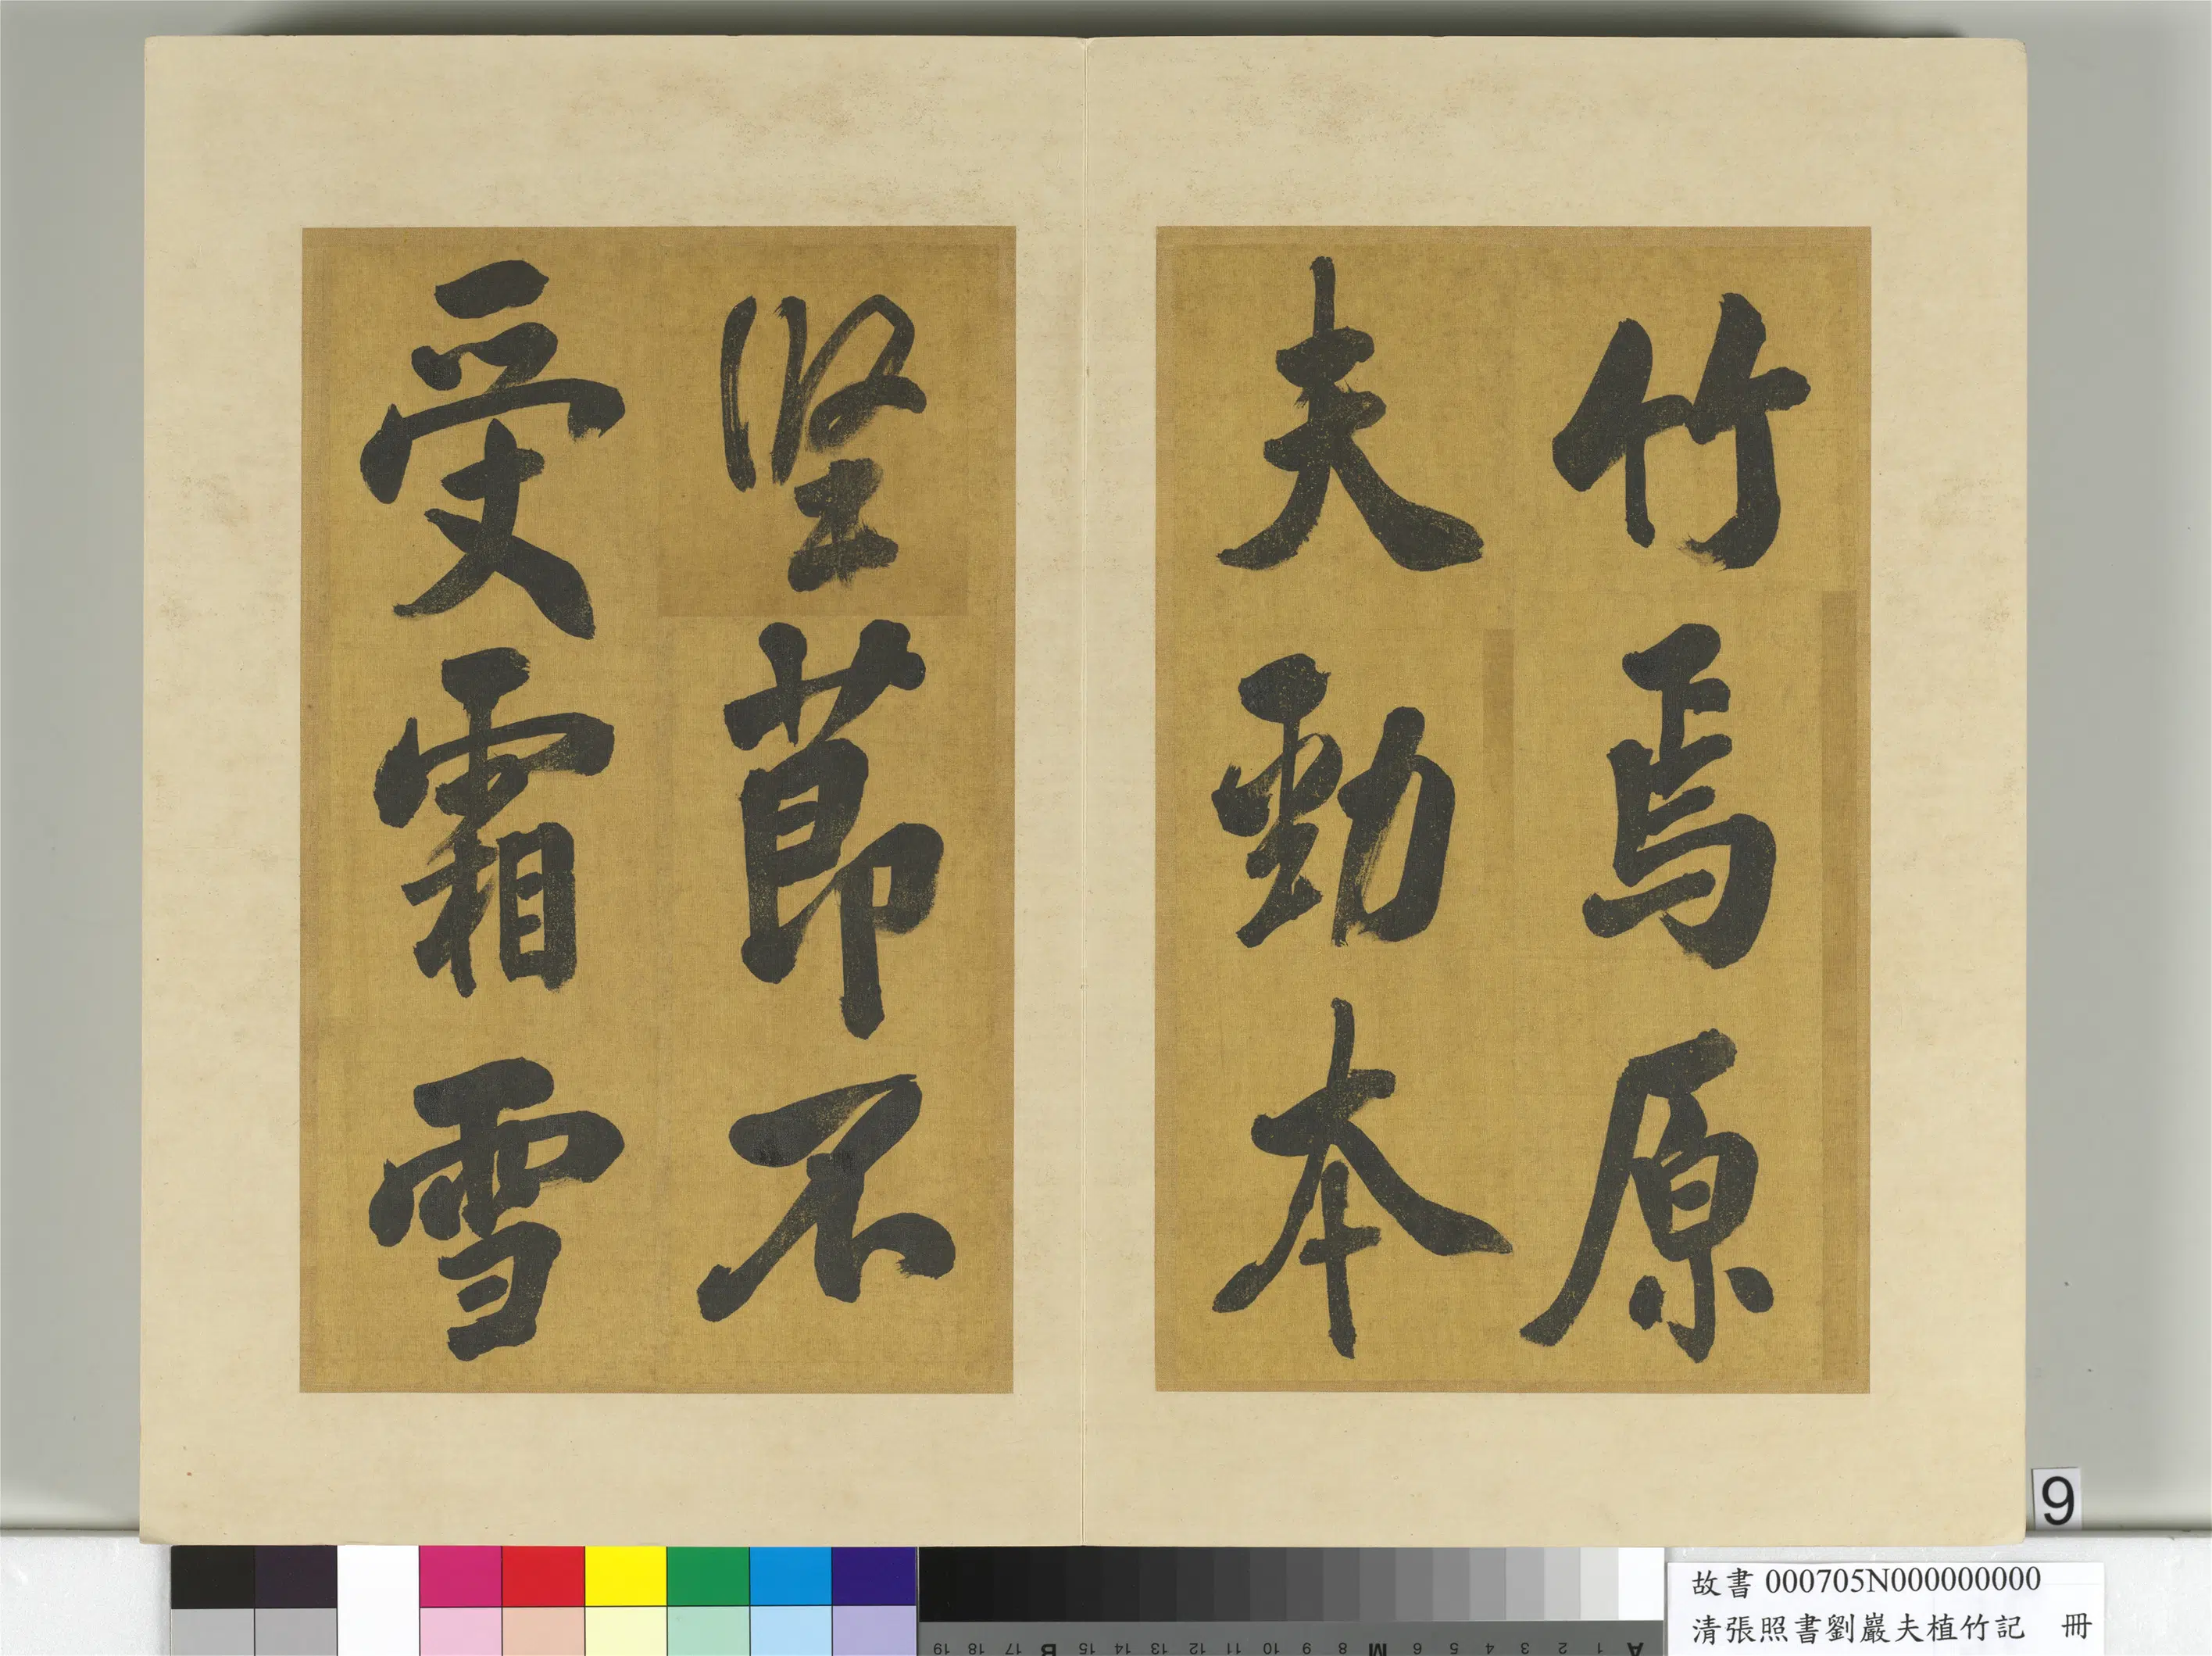 竹焉原
夫勁本
堅節不
受霜雪
9
故書 000705N000000000
清張照書劉巖夫植竹記 冊
A 1 2 3 4 5 6 7 8 M 9 10 11 12 13 14 15 B 17 18 19